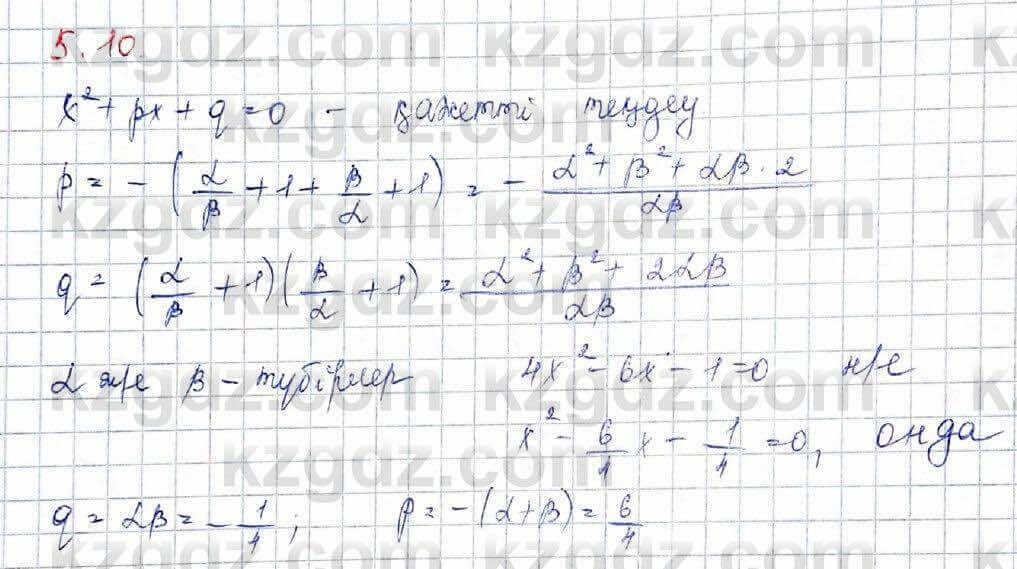 5.10.
x² + px + q = 0 - қажетті теңдеу
p = - (α/β + 1 + β/α + 1) = - (α² + β² + αβ · 2)/(αβ)
q = (α/β + 1)(β/α + 1) = (α² + β² + 2αβ)/(αβ)
α және β - түбірлер 4x² - 6x - 1 = 0 н/е
x² - 6/4 x - 1/4 = 0, онда
q = αβ = - 1/4; p = - (α + β) = 6/4
kzgdz.com